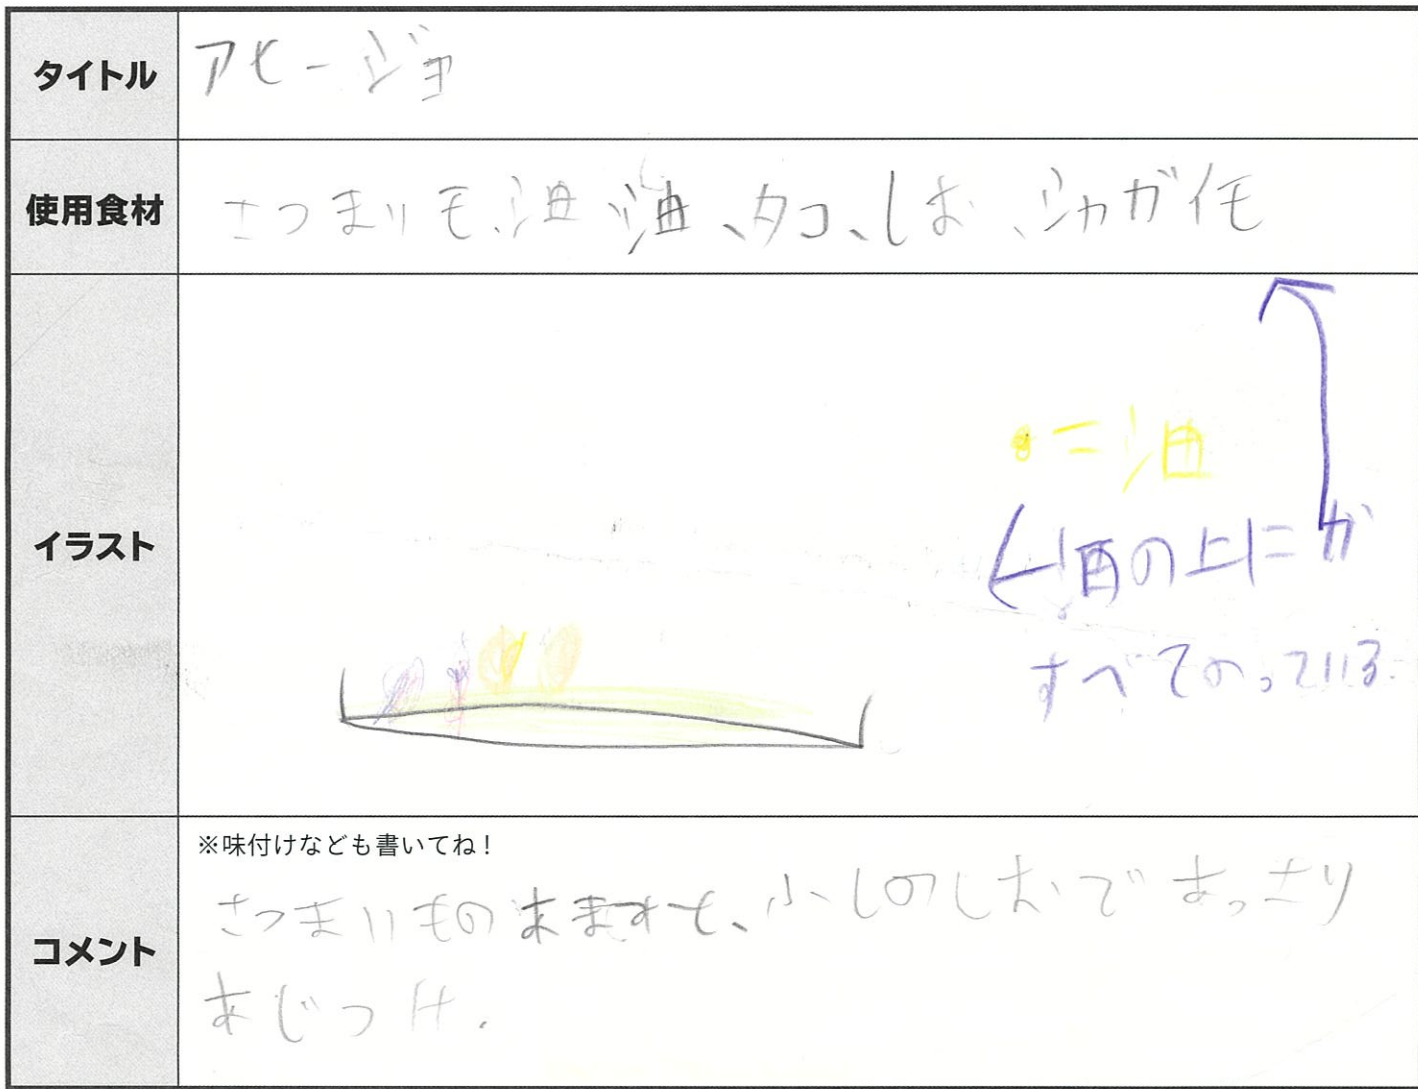 タイトル
アヒージョ
使用食材
さつまいも、油、油、タコ、しお、ジャガイモ
イラスト
= 油
の上にが
すべてのっている
コメント
※味付けなども書いてね!
さつまいものあまみと、少しのしおであっさり
あじつけ.